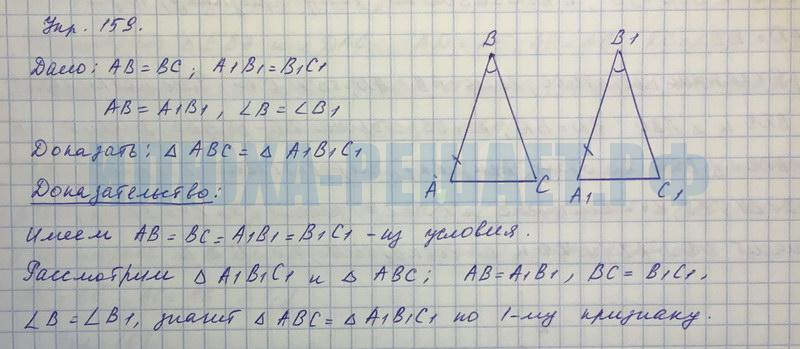 Упр. 159.
Дано: AB = BC; A1B1 = B1C1
AB = A1B1, ∠B = ∠B1
Доказать: △ ABC = △ A1B1C1
Доказательство:
Имеем AB = BC = A1B1 = B1C1 - из условия.
Рассмотрим △ A1B1C1 и △ ABC; AB = A1B1, BC = B1C1,
∠B = ∠B1, значит △ ABC = △ A1B1C1 по 1-му признаку.
B B1
A C A1 C1